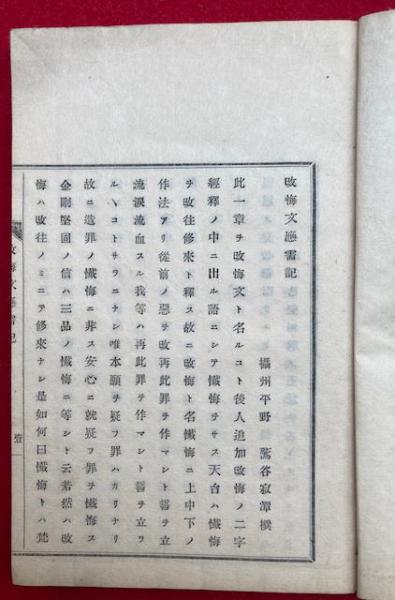 改悔文廳書記
攝州平野 鷲谷寂潭撰
此一章ヲ改悔文ト名ルコト後人追加改悔ノ二字
經釋ノ中ニ出ル語ニシテ懺悔ヲサス天台ハ懺悔
ヲ改往修來ト釋ス故ニ改悔ト名懺悔ニ上中下ノ
作法アリ從前ノ惡ヲ改再此罪ヲ作マシト誓ヲ立
流淚流血スル我等ハ再此罪ヲ作マシト誓ヲ立ラ
ルヽコトサラニナシ唯本願ヲ疑フ罪ハカリナリ
故ニ造罪ノ懺悔ニ非ス安心ニ就疑フ罪ヲ懺悔ス
金剛堅固ノ信ハ三品ノ懺悔ニ等シト云若然ハ改
悔ハ改往ノミニテ修來ナシ是如何曰懺悔トハ梵
改悔文廳書記
壹